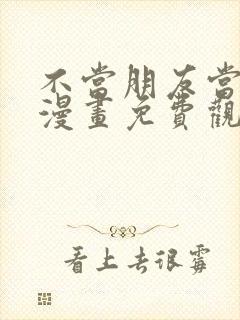 不當朋友當
漫畫免費觀
看上去很霉